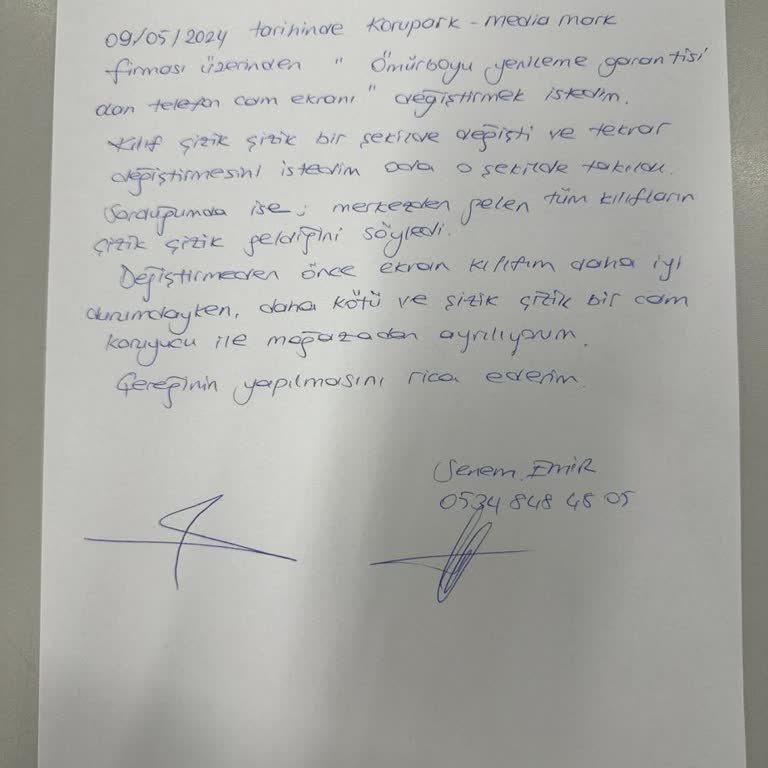 09/05/2024 tarihinde Korupark - media mark
firması üzerinden " Ömürboyu yenileme garantisi
dan telefon cam ekranı " değiştirmek istedim.
Kılıf çizik çizik bir şekilde değişti ve tekrar
değiştirmesini istedim oda o şekilde takıldı.
Sorduğumda ise; merkezden gelen tüm kılıfların
çizik çizik geldiğini söyledi.
Değiştirmeden önce ekran kılıfım daha iyi
durumdayken, daha kötü ve çizik çizik bir cam
koruyucu ile mağazadan ayrılıyorum.
Gereğinin yapılmasını rica ederim.
Senem EMİR
0534 848 48 05